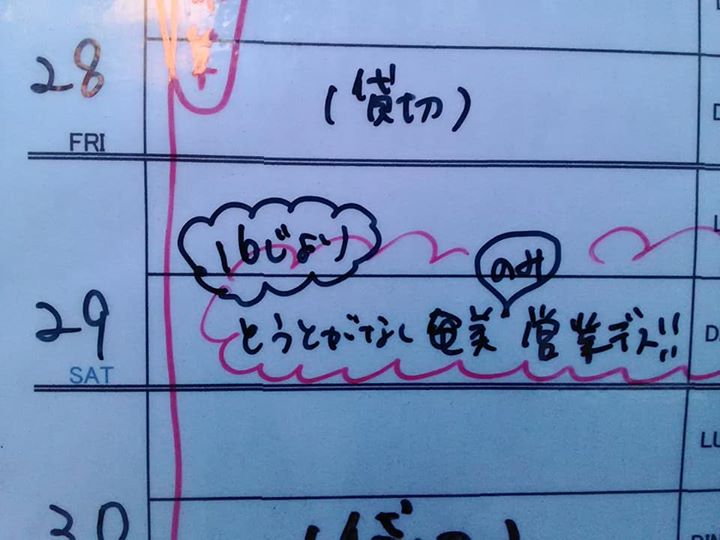 28
(貸切)
FRI
16じより
のみ
29
とうとがなし奄美 営業デス!!
SAT
LU
30